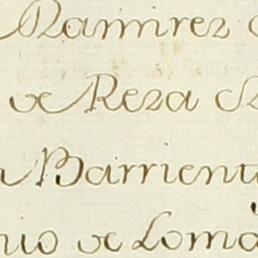 Ramirez
de Reza
Barrient
nio de Loma